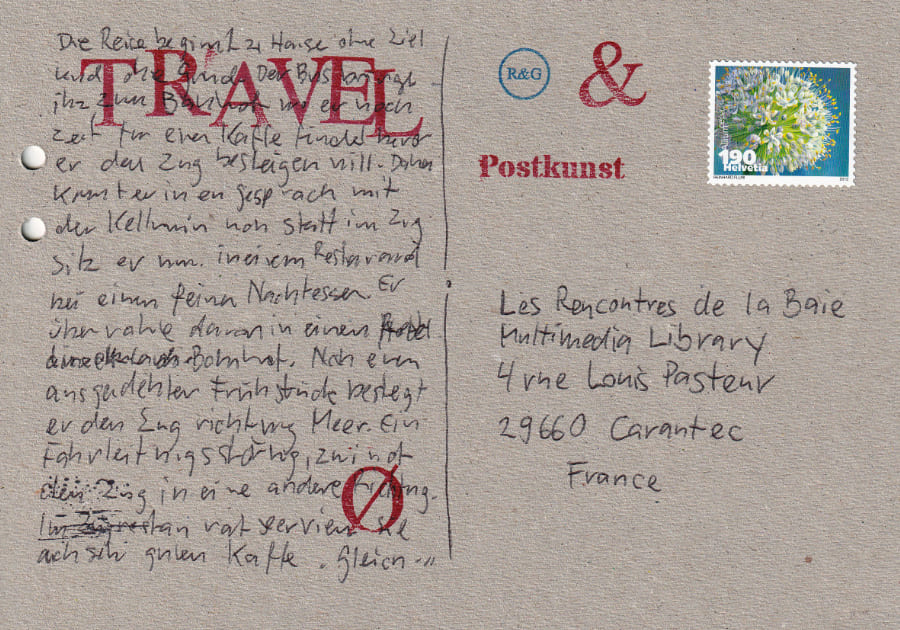 Die Reise beginnt zu Hause ohne Ziel
und ohne Grund. Der Bus bringt
ihn zum Bahnhof wo er noch
Zeit für einen Kaffe findet bevor
er den Zug besteigen will. Dann
kommt er in en gespräch mit
der Kellnerin von statt im Zug
sitz er nun in einem Restaurand
bei einem feinen Nachtessen. Er
über daran in einem Hotel
Bahnhof. Nach
ausgedehnten Frühstück besteigt
er den Zug richtung Meer. Ein
Fahrleitungsstörung, zwingt
den Zug in eine andere richtung.
Im servieren sie
auch sehr guten Kaffe. Gleich ...
TRAVEL
Ø
R&G
&
Postkunst
190
Helvetia
2012
Les Rencontres de la Baie
Multimedia Library
4 rue Louis Pasteur
29660 Carantec
France